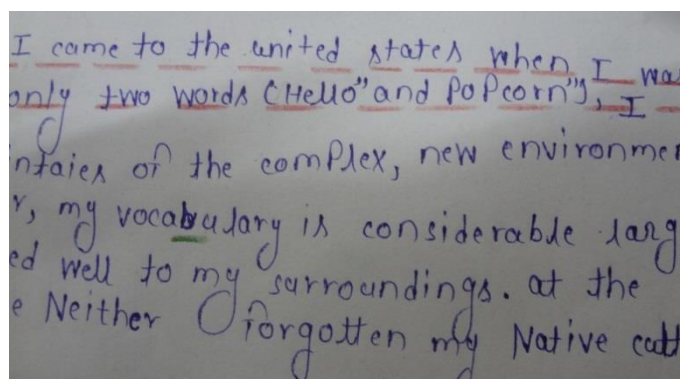 I came to the united states when I was
only two words (Hello" and PoPcorn"), I
ntaies of the complex, new environmen
r, my vocabulary is considerable larg
ed well to my surroundings. at the
e Neither forgotten my Native cult